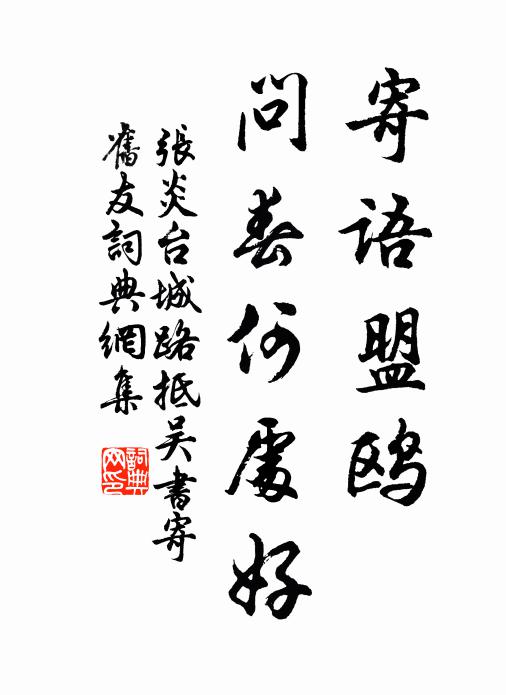 寄語盟鷗
問春何處好
張炎台城路抵吴書寄
舊友詞典網集
詞典网印